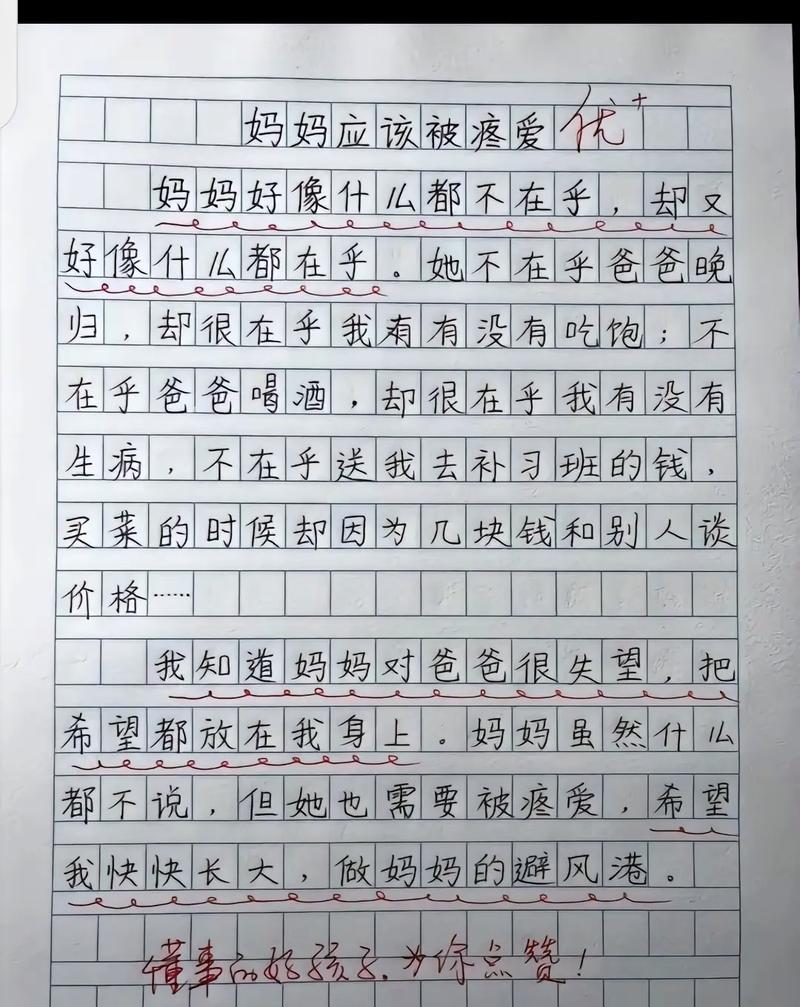 妈妈应该被疼爱 优+
妈妈好像什么都不在乎，却又
好像什么都在乎。她不在乎爸爸晚
归，却很在乎我有有没有吃饱；不
在乎爸爸喝酒，却很在乎我有没有
生病，不在乎送我去补习班的钱，
买菜的时候却因为几块钱和别人谈
价格……
我知道妈妈对爸爸很失望，把
希望都放在我身上。妈妈虽然什么
都不说，但她也需要被疼爱，希望
我快快长大，做妈妈的避风港。
懂事的好孩子，为你点赞！